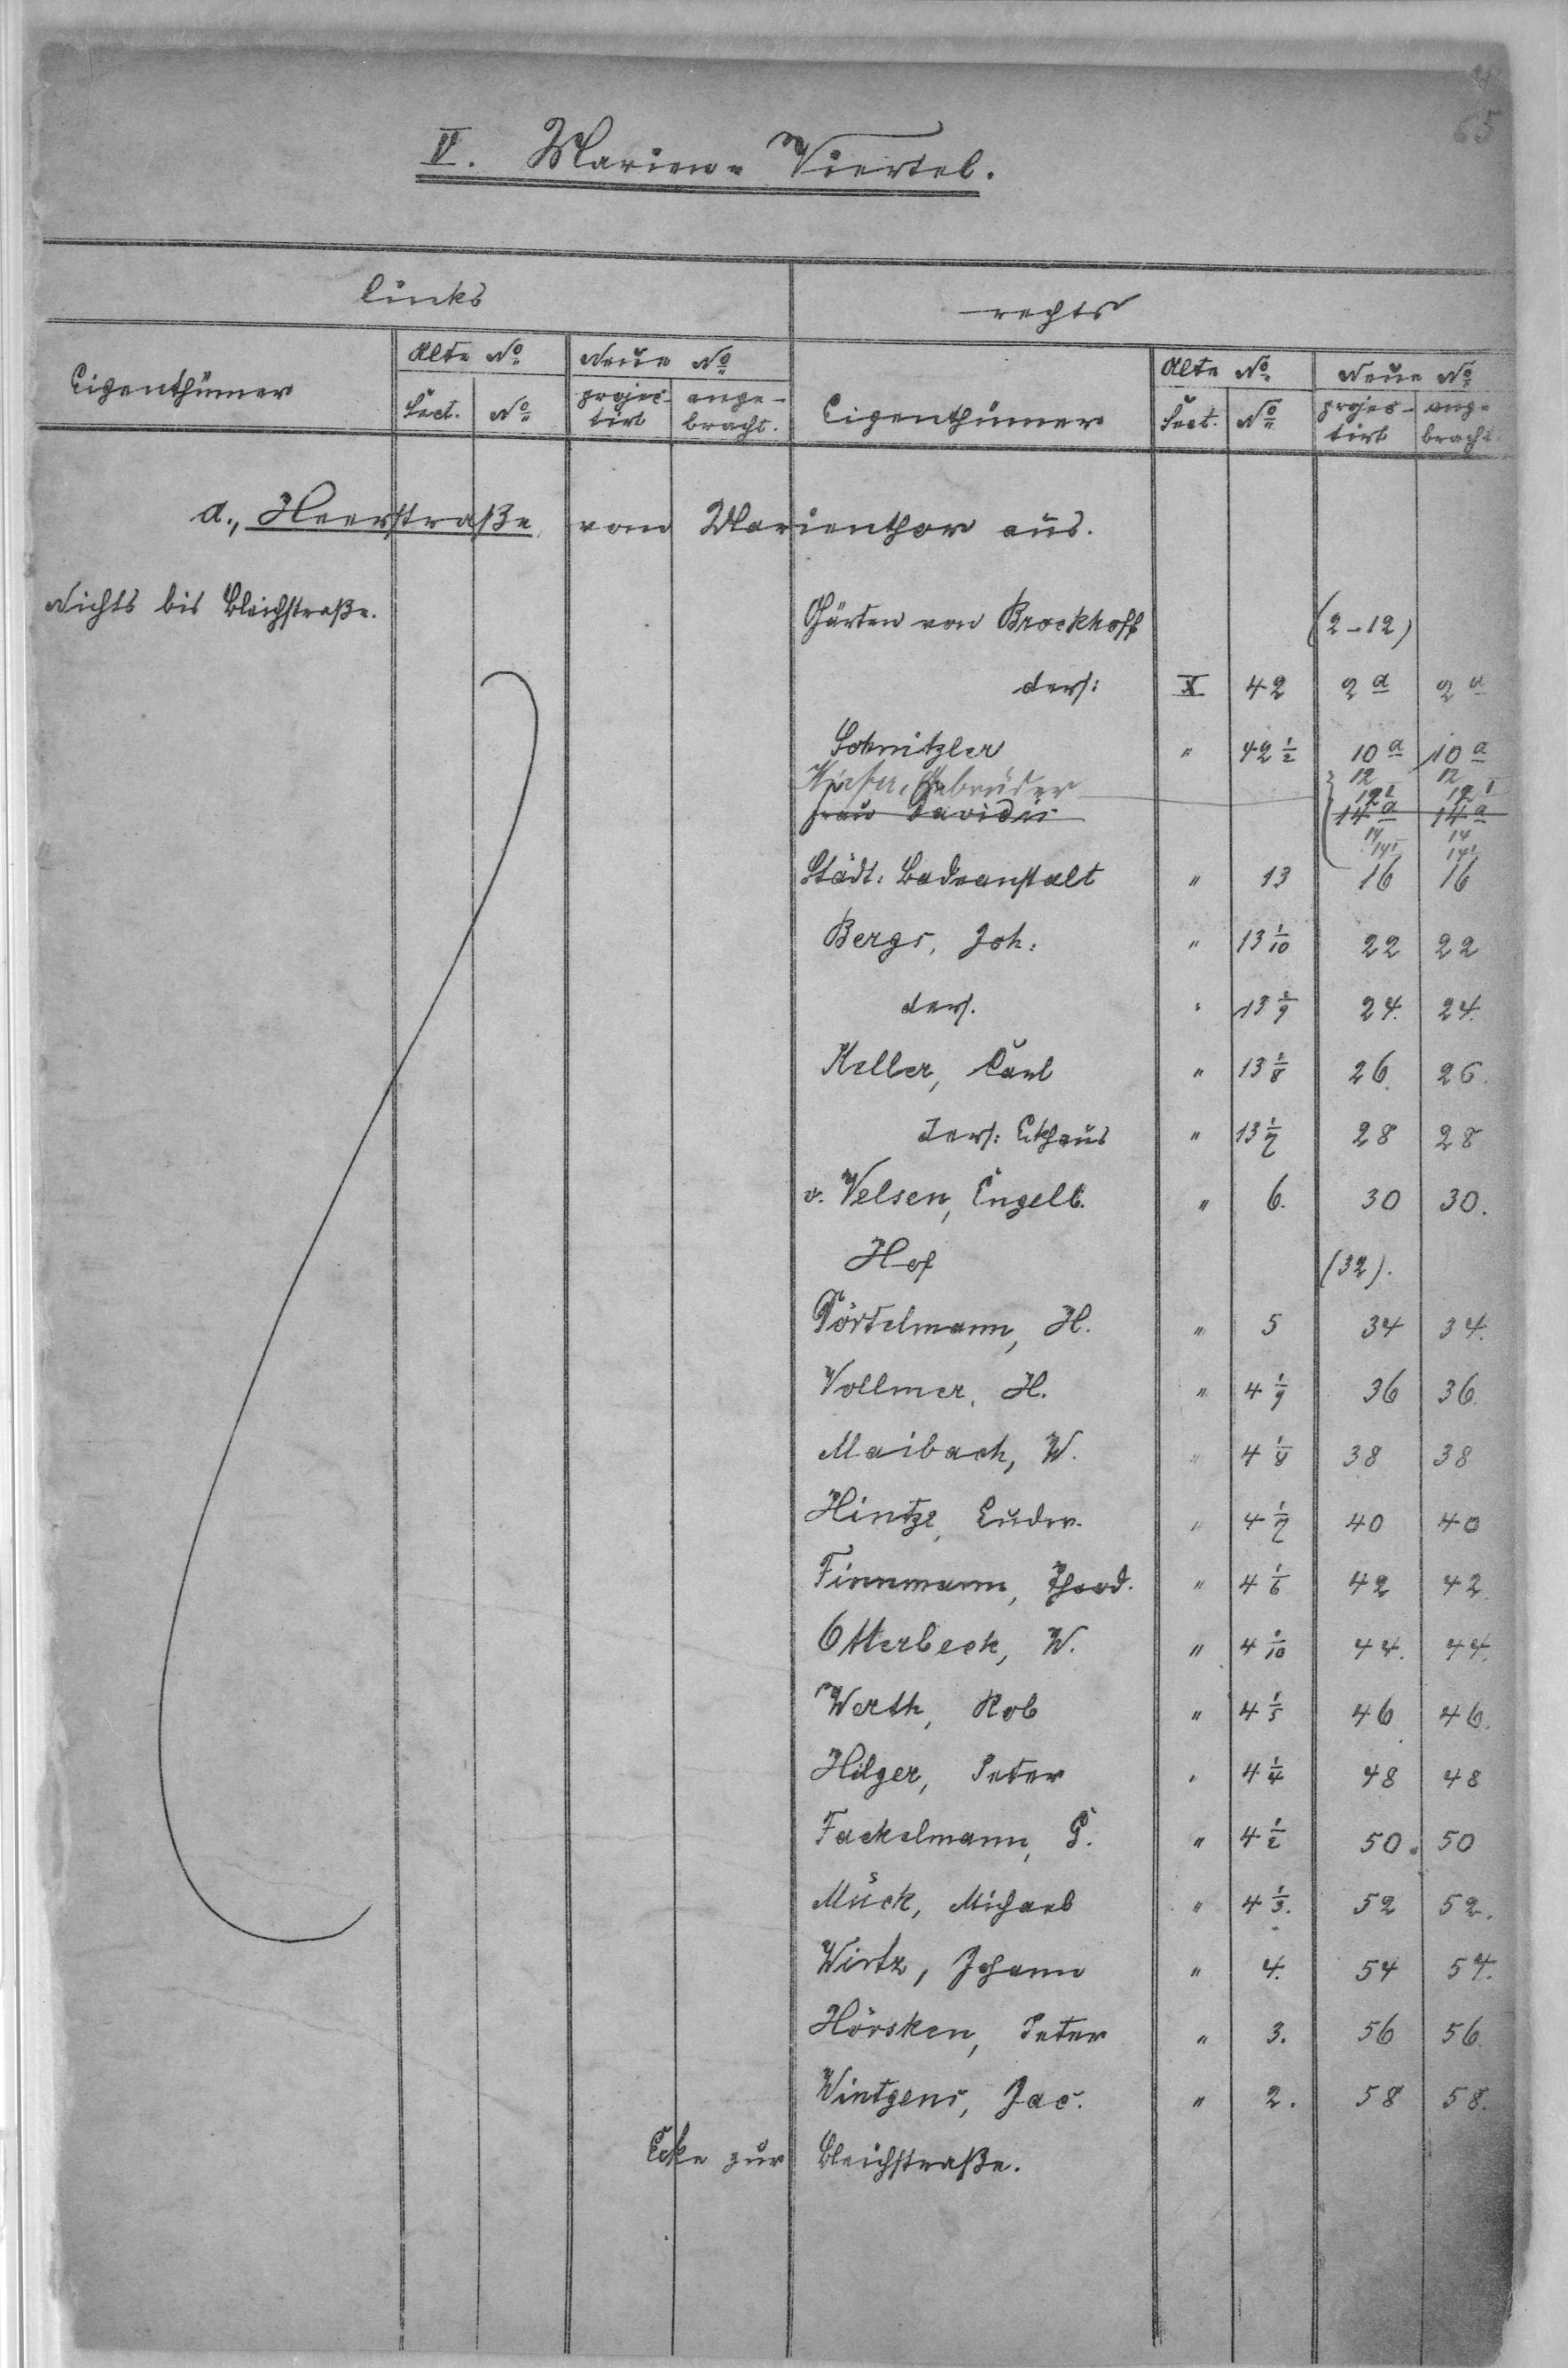 65
V. Marien-Viertel.
links rechts
Eigenthümer Alte No Neue No Eigenthümer Alte No Neue No
Sect. No projec-tirt ange-bracht. Sect. No projec-tirt ange-bracht.
a., Heerstraße vom Marienthor aus.
Nichts bis Bleichstraße.
Gärten von Brockhoff (2-12)
ders: X 42 2a 2a
Schnitzler " 42 1/2 10a 10a
Gebrüder 12 12
12 1 12 1
Frau Davidis 14a 14a
14 14
14 1 14 1
Städt: Badeanstalt " 13 16 16
Bergs, Joh: " 13 1/10 22 22
ders. " 13 1/9 24. 24.
Keller, Carl " 13 1/8 26. 26.
Ders: Eckhaus " 13 1/7 28 28
v. Velsen, Engelb. " 6. 30 30.
Hof (32).
Pörtelmann, H. " 5 34 34.
Vollmer, H. " 4 1/9 36 36.
Maibach, W. " 4 1/8 38 38
Hintze, Ludw. " 4 1/7 40 40
Finnmann, Theod. " 4 1/6 42 42.
Otterbeck, W. " 4 1/10 44. 44.
Werth, Rob " 4 1/5 46 46.
Hilger, Peter " 4 1/4 48 48
Fackelmann, G. " 4 1/2 50. 50
Mück, Michael " 4 1/3. 52 52.
Wirtz, Johann " 4. 54 54.
Hörsken, Peter " 3. 56 56.
Wintgens, Jac. " 2. 58 58.
Ecke zur Bleichstraße.